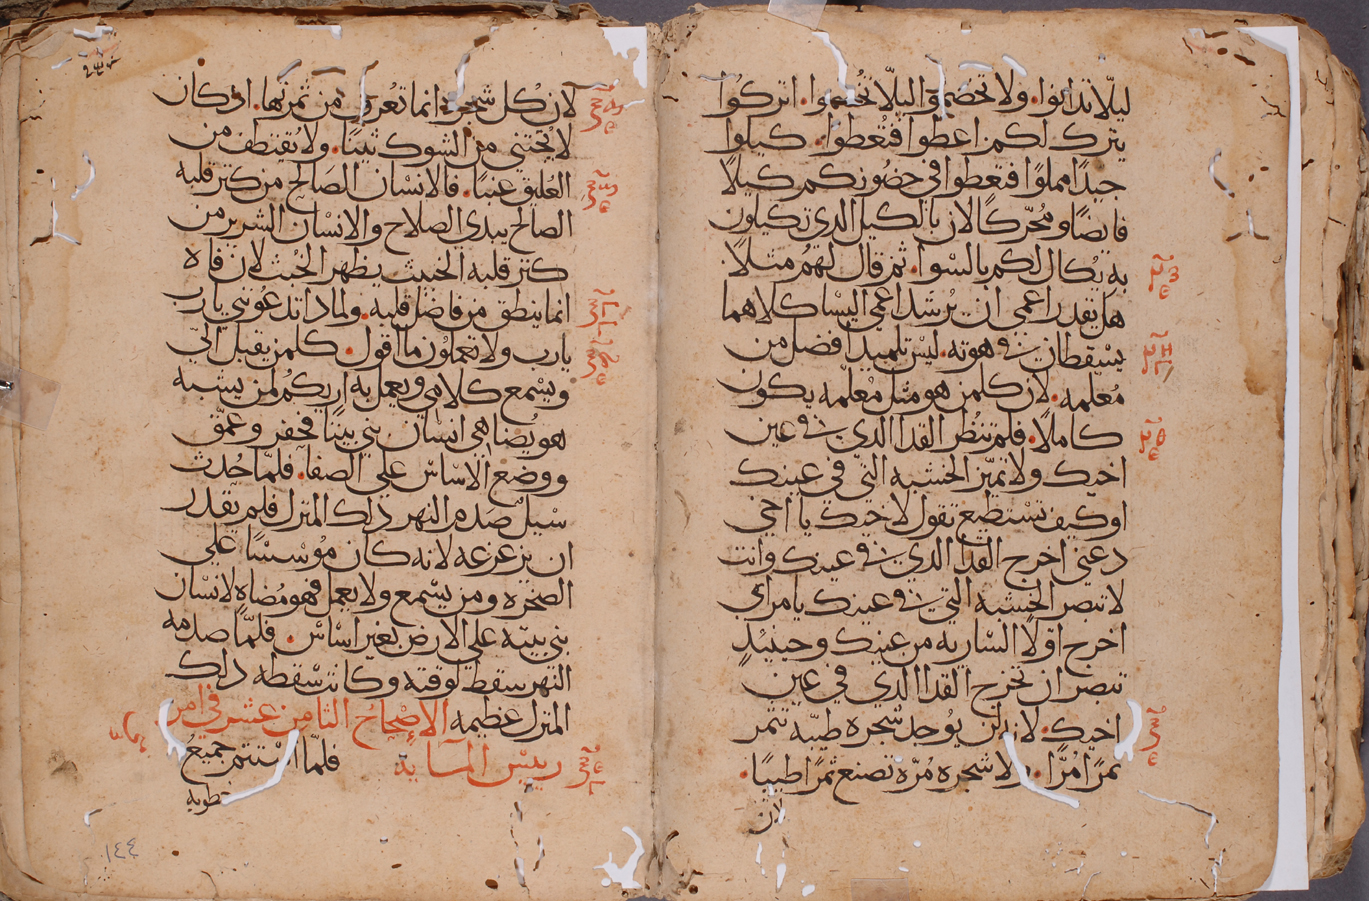 ليلّا تدانوا. ولا تخصموا ليلّا تخصموا. اتركوا
يترك لكم اعطوا فتُعطوا. كيلوا
جيدًا مملوًا فتعطوا في حضونكم كيلًا
فايضًا ومُحرّكًا لان بالكيل الدي تكيلون
به يُكال لكم بالسْوا. ثم قال لهُم مثلًا.
هل يقدر اعمى ان يُرشد اعمى اليسا كلاهما
يسْقطان في هوته. ليس تلميدا افضل من
مُعلمه. لان كلمن هو مثل مُعلّمه يكون
كاملًا. فلم تنظُر القدا الدي في عين
اخيك ولا تميّز الخشبه التي في عينك
او كيف تسْتطيع تقول لاخيك يا اخي
دعني اخرج القدا الدي في عينك وانت
لا تبصر الخشبه التي في عينك يا مراي
اخرج اوّلًا السْاريه من عينك وحينيْدٍ
تبصر ان تخرج القدا الدي في عين
اخيك. لانه لن يُوجد شجره طيّبه تثمر
ثمرًا مُرًّا. ولا شجره مُرّه تصنع ثمرًا طيبًا.
لان
لان كُل شجره انما تعرف من ثمرتها. اد كان
لا يُجتني من الشوك تينًا. ولا يقتطف من
العُليق عنبًا. فالانسْان الصَالح من كنز قلبه
الصالح يبدي الصلاح والانسْان الشرير من
كنز قلبه الخبيث يظهر الخبث لان فاه
انما ينطق من فاضل قلبه. ولمادا تدعُونني يا رب
يا رب ولا تعملون ما اقول. كلمن يقبل اليّ
ويسْمع كلامي ويعمل به اريكمُ لمن يشبه
هو يُضاهي انسْان بني بيتًا فحفر وعمّق
ووضع الاسْاسْ علي الصفا. فلمّا حُدث
سْيل صَدم النهر دلك المنزل فلم يقدر
ان يزعزعه لانه كان مُوسْسْا علي
الصخره ومن يسْمع ولا يعمل فهو مُضاه لانسْان
بني بيته علي الارض بغير اسْاسْ. فلمّا صدمه
النهر سقط لوقته وكانت سْقطه دلك
المنزل عظيمه الاصْحاحُ الثامن عشر في امر
رييسْ المايه فلمّا اسْتتم جميعُ
خطوبه
١٤٤